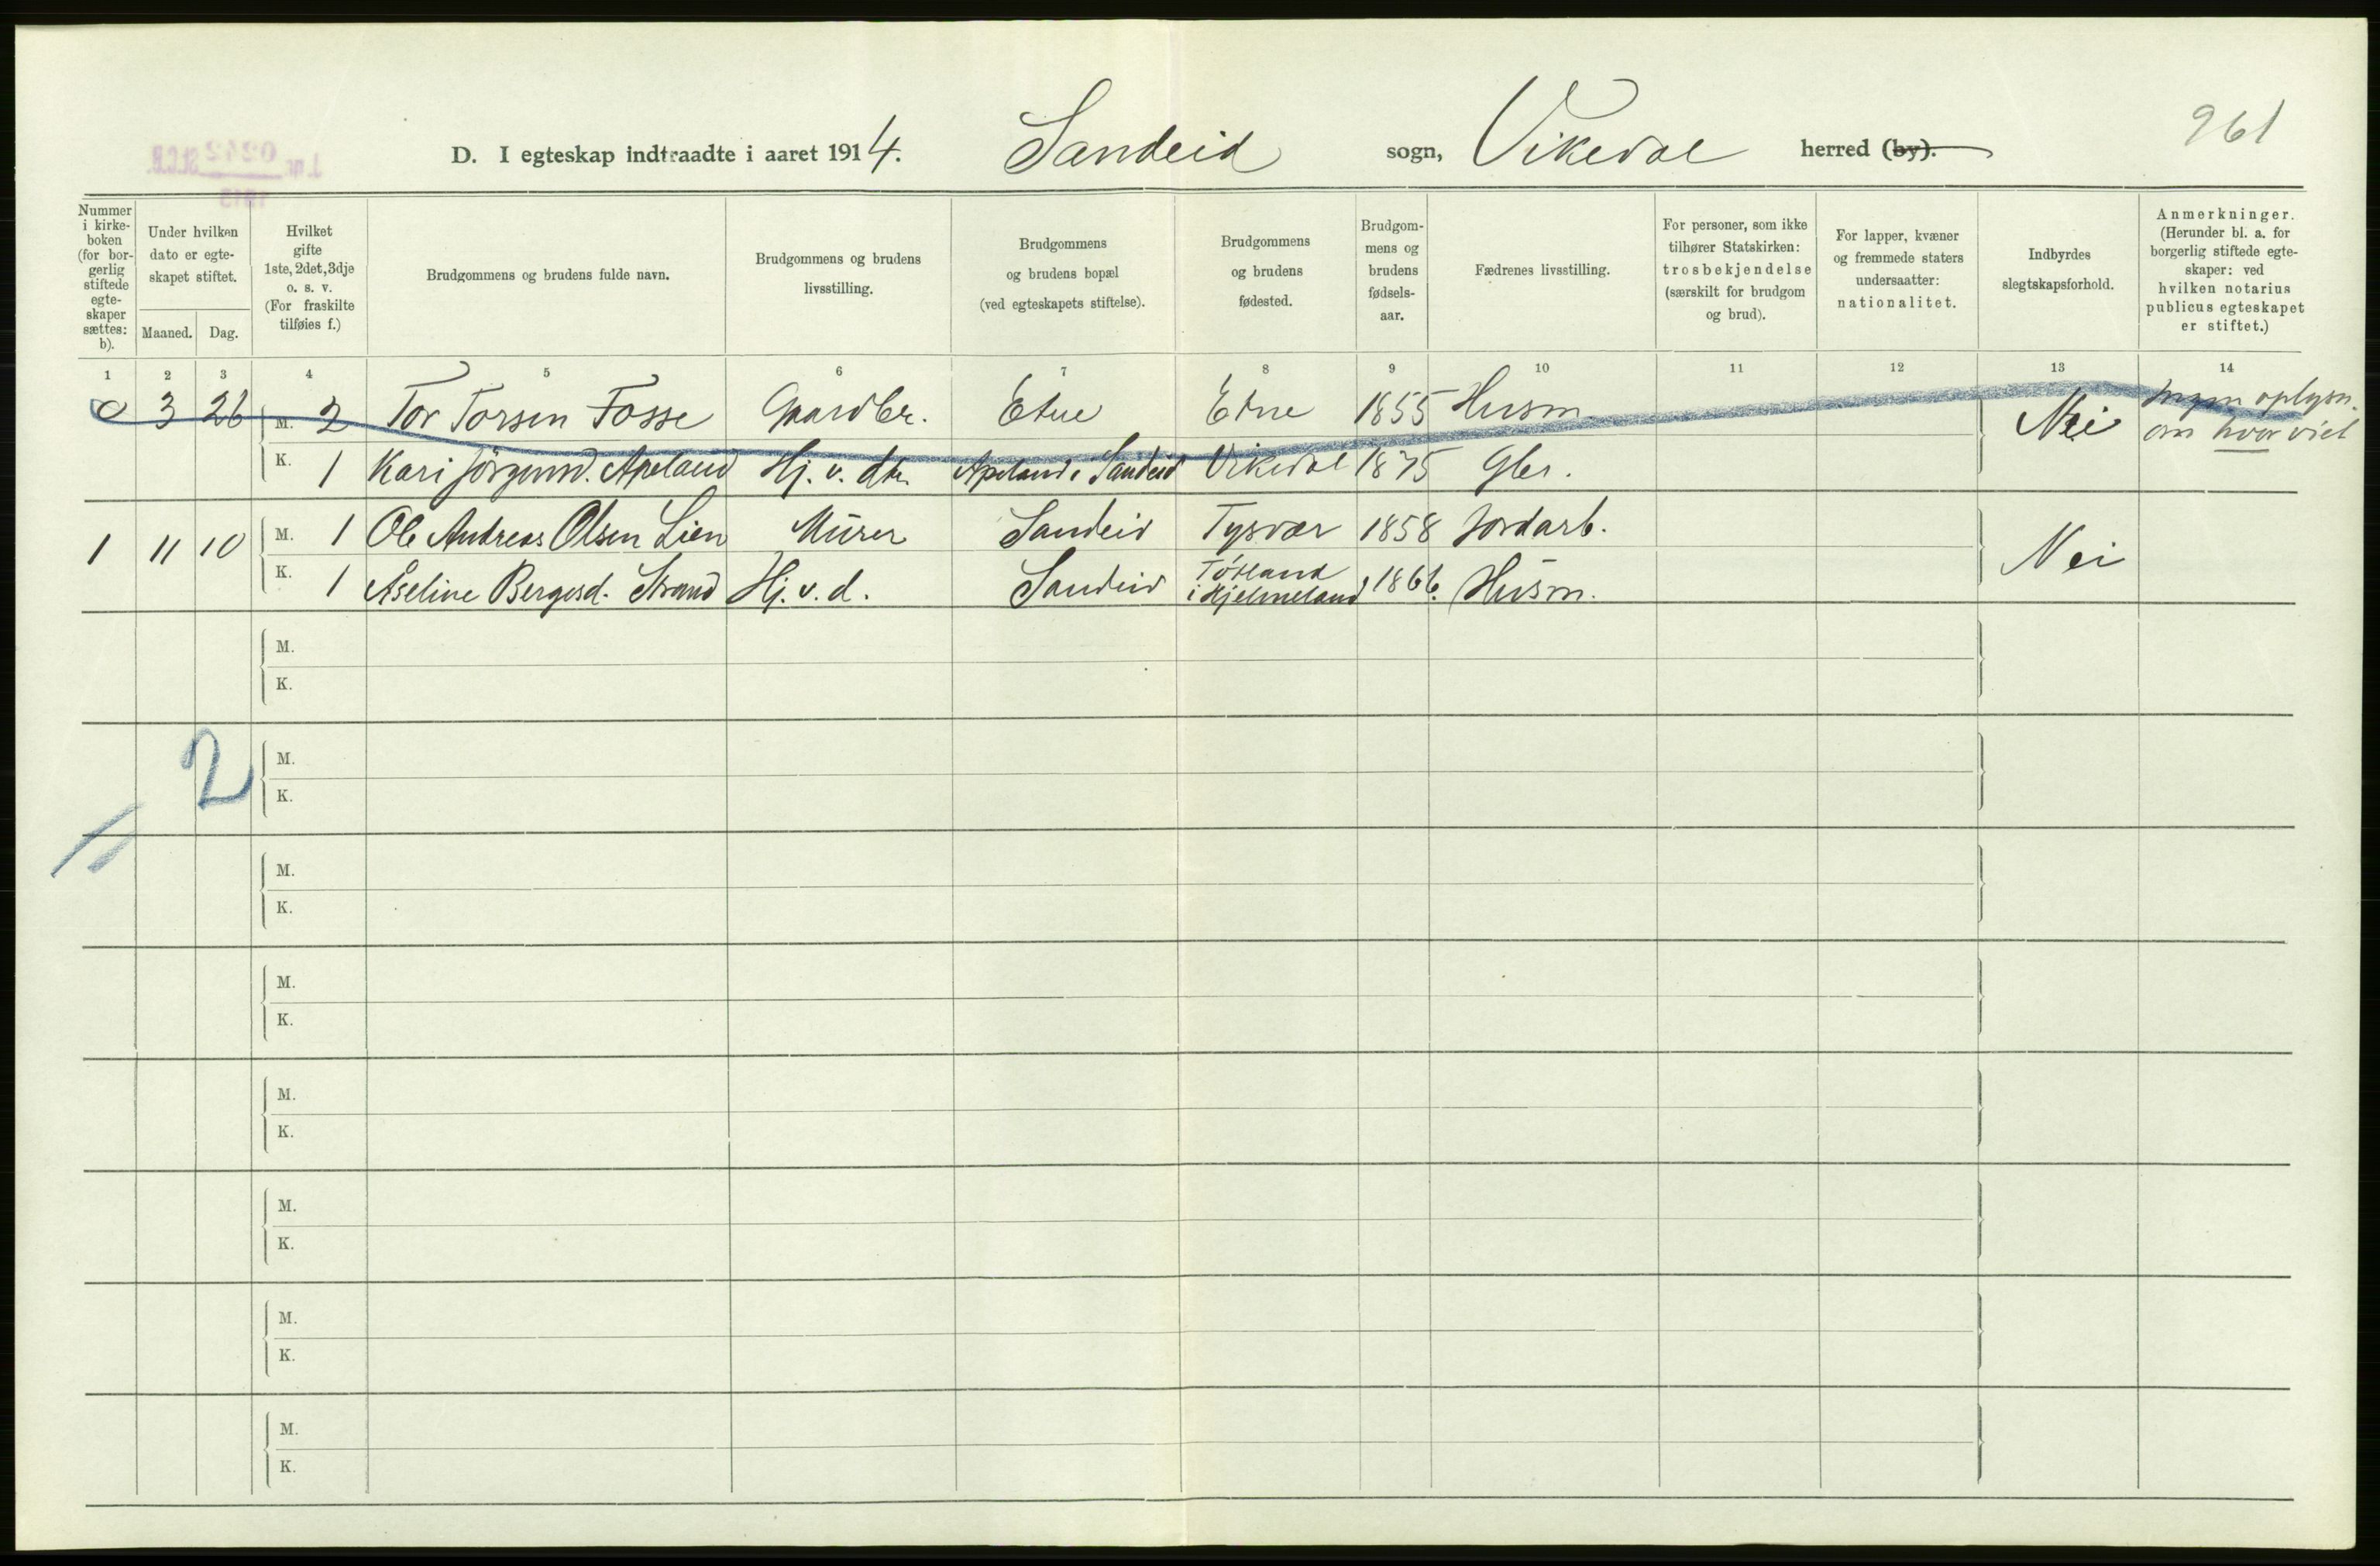 961
D. I egteskap indtraadte i aaret 1914. Sandeid sogn, Vikedal herred (by).
Nummer i kirke-boken (for bor-gerlig stiftede egte-skaper sættes: b).
Under hvilken dato er egte-skapet stiftet.
Maaned. Dag.
Hvilket gifte 1ste, 2det, 3dje o. s. v. (For fraskilte tilføies f.)
Brudgommens og brudens fulde navn.
Brudgommens og brudens livsstilling.
Brudgommens og brudens bopæl (ved egteskapets stiftelse).
Brudgommens og brudens fødested.
Brudgom-mens og brudens fødsels-aar.
Fædrenes livsstilling.
For personer, som ikke tilhører Statskirken: trosbekjendelse (særskilt for brudgom og brud).
For lapper, kvæner og fremmede staters undersaatter: nationalitet.
Indbyrdes slegtskapsforhold.
Anmerkninger. (Herunder bl. a. for borgerlig stiftede egte-skaper: ved hvilken notarius publicus egteskapet er stiftet.)
1 2 3 4 5 6 7 8 9 10 11 12 13 14
0 3 26 M. 2 Tor Torsen Fosse Gaardbr. Etne Etne 1855 Husm. Nei Ingen oplysn. om hvor viet
K. 1 Kari Jørgensd. Apeland Hj. v. dtr. Apeland i Sandeid Vikedal 1875 Gbr.
1 11 10 M. 1 Ole Andreas Olsen Lien Murer Sandeid Tysvær 1858 Jordarb. Nei
K. 1 Aseline Bergesd. Strand Hj. v. d. Sandeid Tøtland i Hjelmeland 1866. Husm.
M.
K.
2
M.
K.
M.
K.
M.
K.
M.
K.
M.
K.
M.
K.
M.
K.